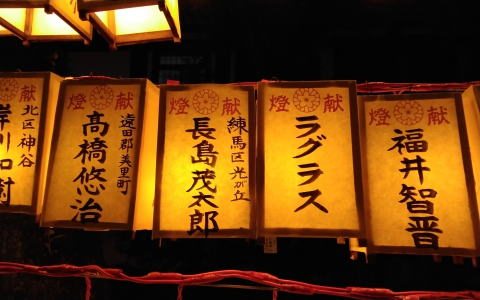 献燈
北区神谷
献燈
遠田郡美里町
高橋悠治
献燈
練馬区光が丘
長島茂太郎
献燈
ラグラス
献燈
福井智晋